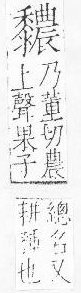 䵜
乃董切農
上聲果子
總名又
耕種也